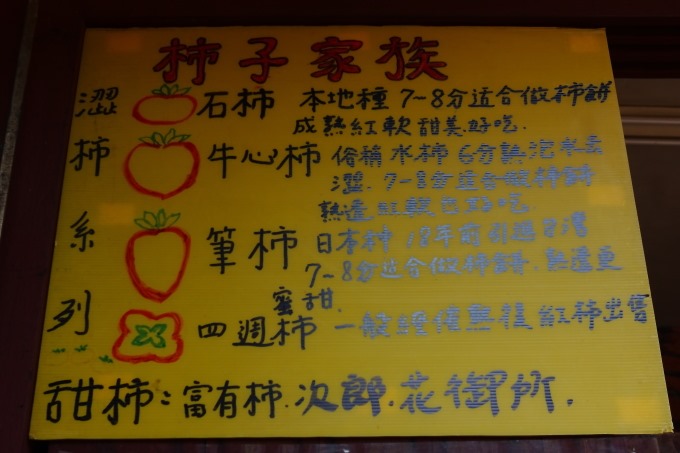 柿子家族
澀柿系列
石柿 本地種 7~8分适合做柿餅
成熟紅軟甜美.好吃.
牛心柿 俗稱水柿 6分熟泡水去
澀. 7~8分适合做柿餅
熟透紅軟也好吃.
筆柿 日本種 18年前引進台灣
7~8分适合做柿餅. 熟透更
蜜甜.
四週柿 一般經催熟後紅柿出售
甜柿：富有柿.次郎.花御所.